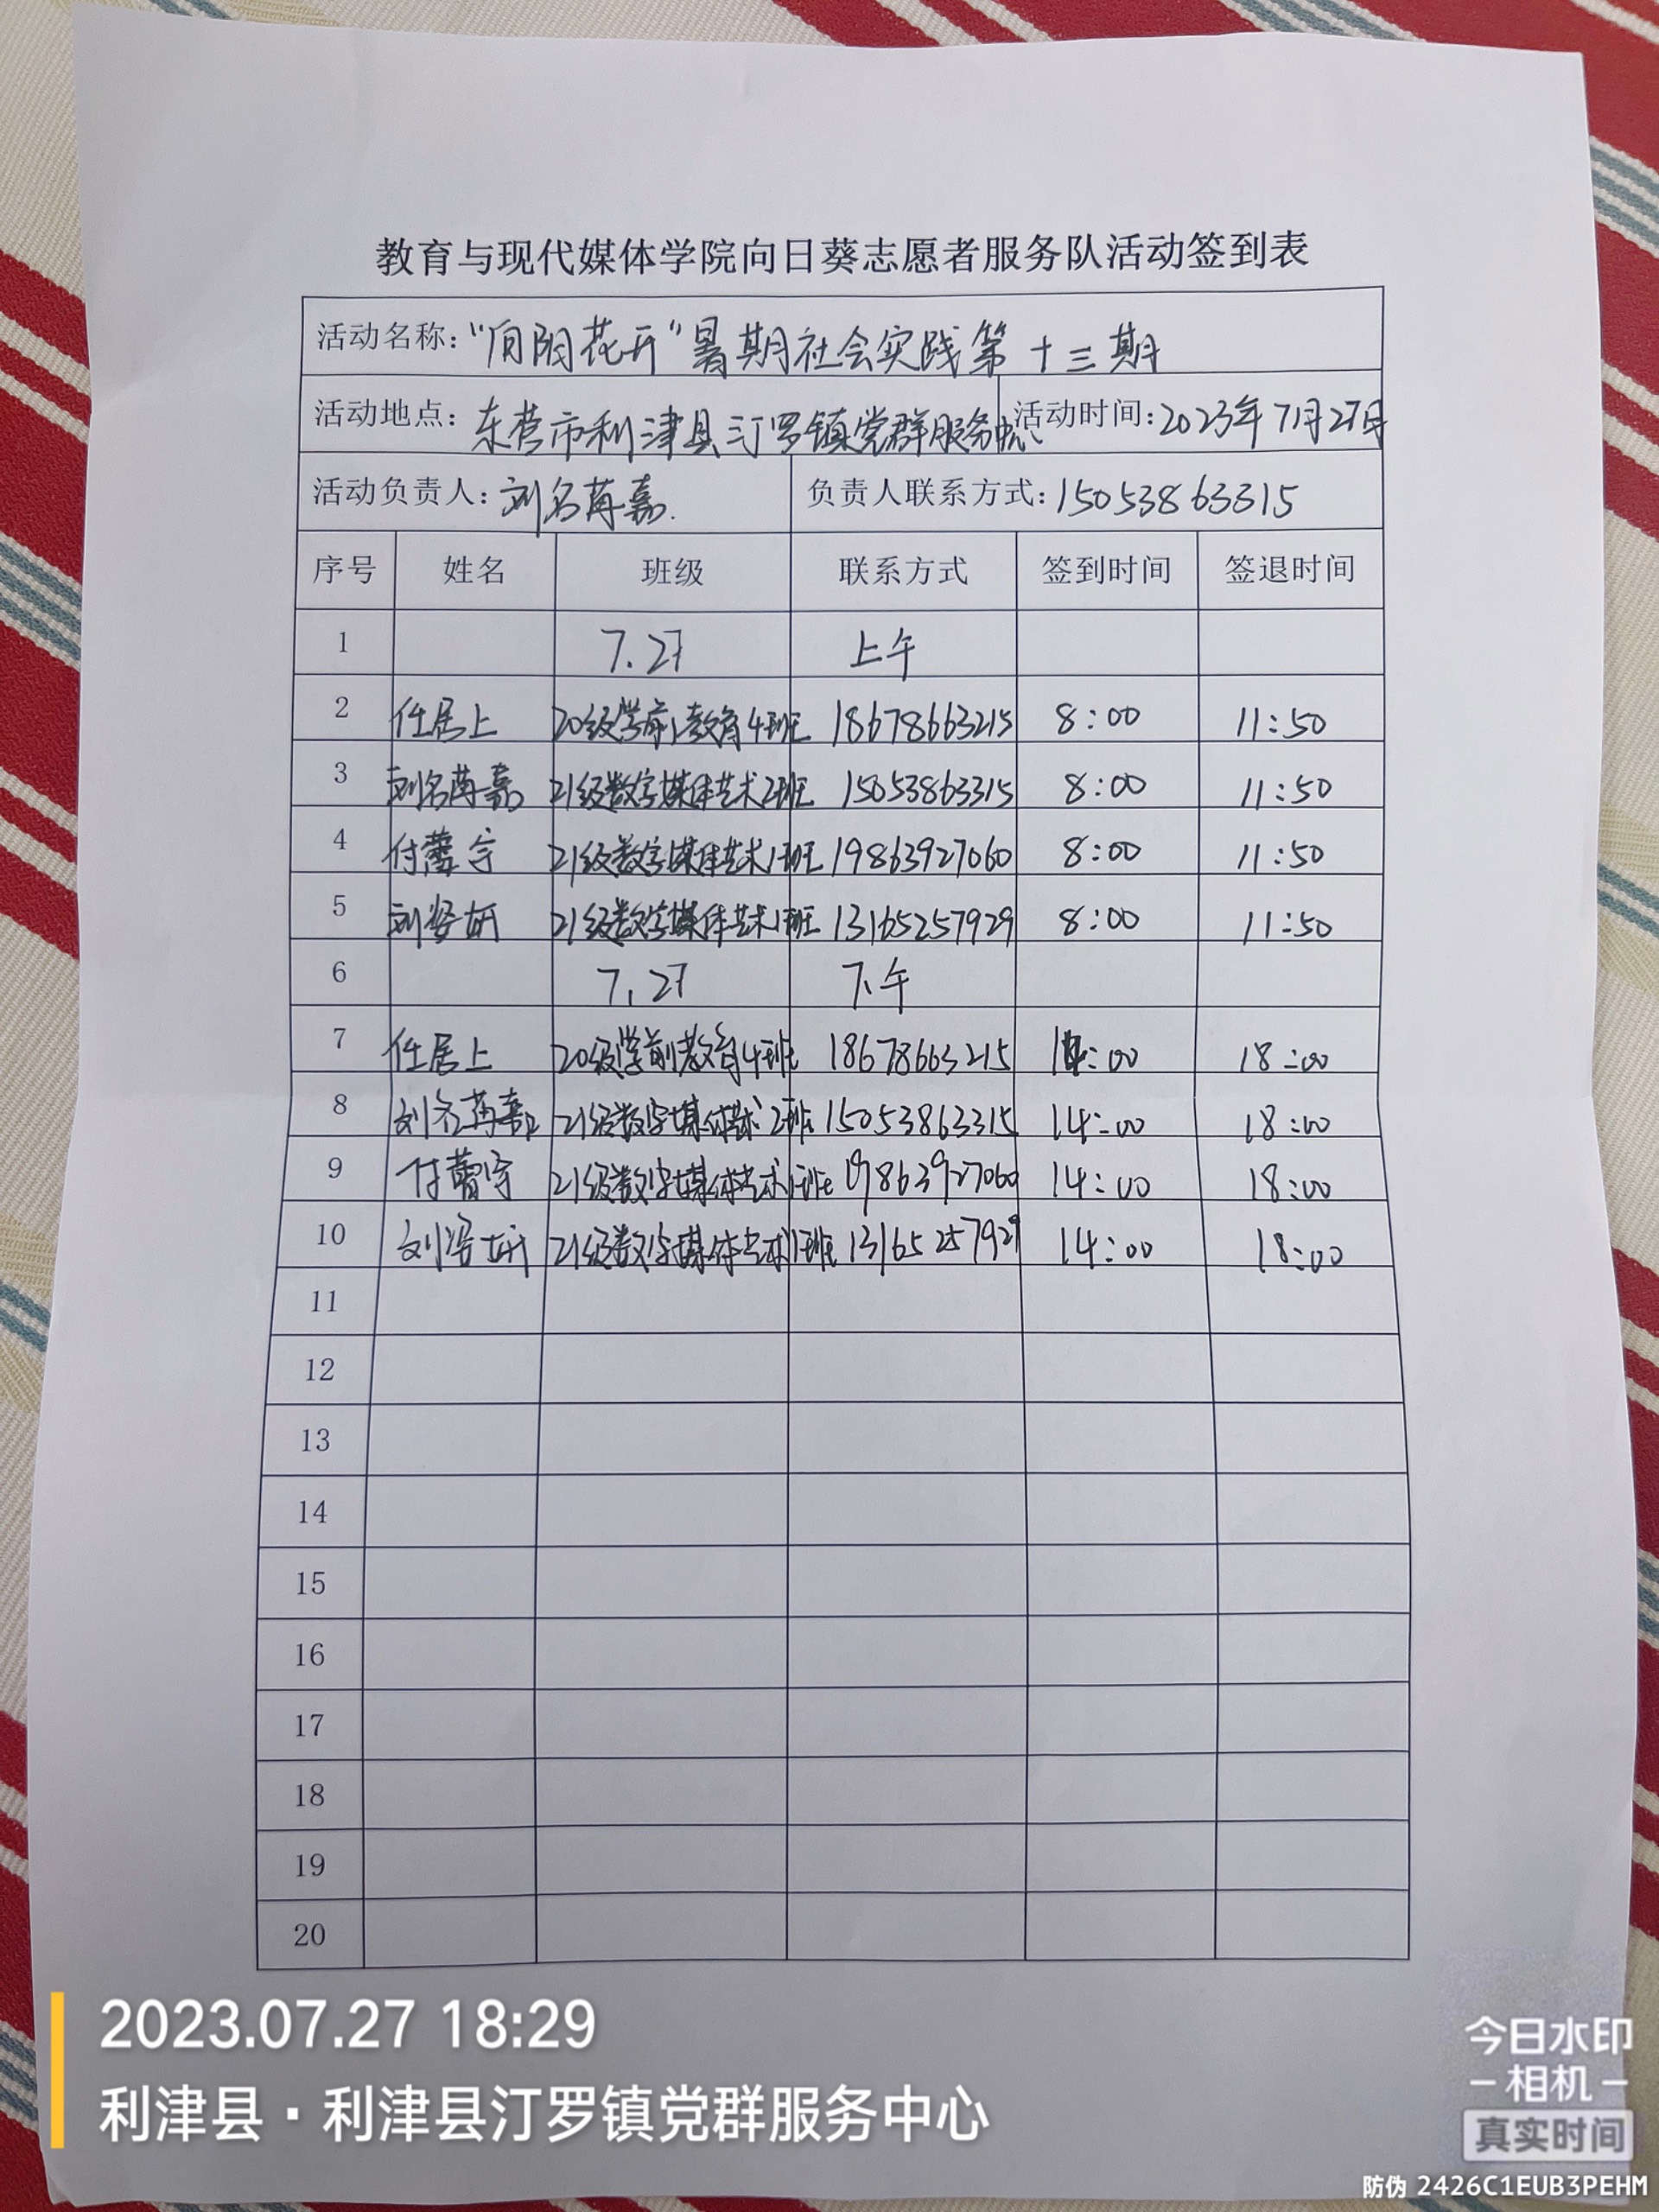 教育与现代媒体学院向日葵志愿者服务队活动签到表
活动名称："向阳花开"暑期社会实践第十三期
活动地点：东营市利津县汀罗镇党群服务中心 活动时间：2023年7月27日
活动负责人：刘名苒嘉. 负责人联系方式：15053863315
序号 姓名 班级 联系方式 签到时间 签退时间
1 7.27 上午
2 任居上 20级学前教育4班 18678663215 8:00 11:50
3 刘名苒嘉 21级数字媒体艺术2班 15053863315 8:00 11:50
4 付蕾宇 21级数字媒体艺术1班 19863927060 8:00 11:50
5 刘姿妍 21级数字媒体艺术1班 13165257929 8:00 11:50
6 7.27 下午
7 任居上 20级学前教育4班 18678663215 14:00 18:00
8 刘名苒嘉 21级数字媒体艺术2班 15053863315 14:00 18:00
9 付蕾宇 21级数字媒体艺术1班 19863927060 14:00 18:00
10 刘姿妍 21级数字媒体艺术1班 13165257929 14:00 18:00
11
12
13
14
15
16
17
18
19
20
2023.07.27 18:29
利津县·利津县汀罗镇党群服务中心
今日水印
-相机-
真实时间
防伪 2426C1EUB3PEHM